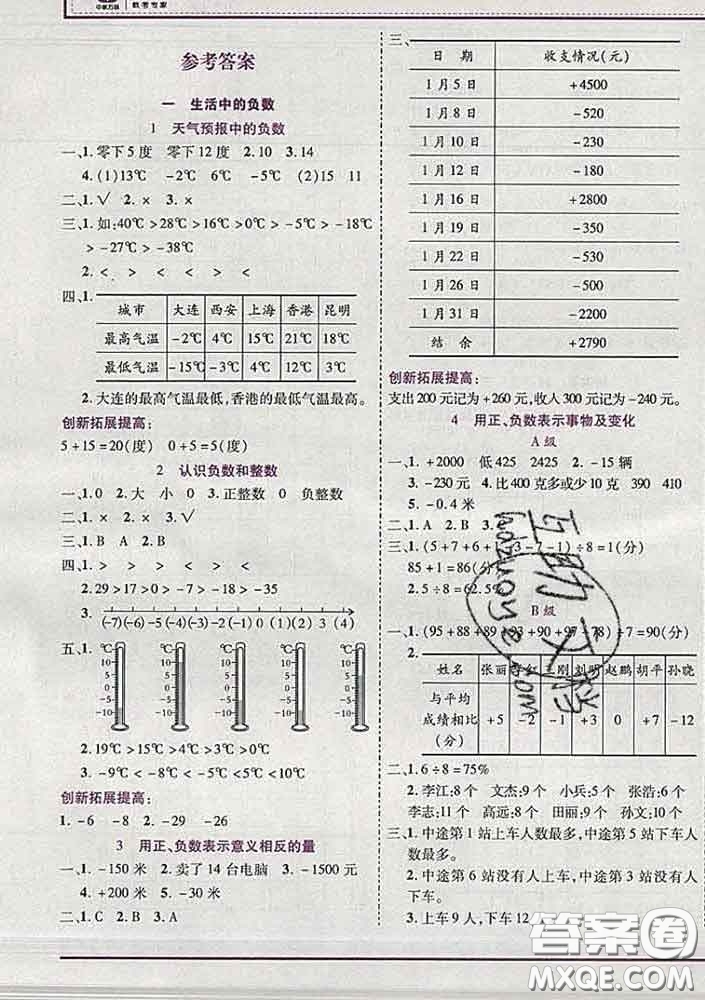 教考专家
参考答案
一 生活中的负数
1 天气预报中的负数
一、1.零下5度 零下12度 2.10 3.14
4.(1)13℃ -2℃ 6℃ -5℃ (2)15 11
二、1.√ 2.× 3.×
三、1.如:40℃>28℃>16℃>0℃>-5℃>-18℃
>-27℃>-38℃
2.< > < < < <
四、1.
城市 大连 西安 上海 香港 昆明
最高气温 -2℃ 4℃ 15℃ 21℃ 18℃
最低气温 -15℃ -3℃ 4℃ 12℃ 3℃
2.大连的最高气温最低,香港的最低气温最高。
创新拓展提高:
5+15=20(度) 0+5=5(度)
2 认识负数和整数
一、1.0 2.大 小 0 3.正整数 0 负整数
二、1.× 2.× 3.√
三、1.B A 2.B
四、1.> > > < > <
2.29>17>0>-7>-18>-35
3.
(-7)(-6)(-5)(-4)(-3)(-2)(-1)0 (1) 2 (3) (4)
五、1. ℃ ℃ ℃ ℃ ℃
10 10 10 10 10
5 5 5 5 5
0 0 0 0 0
-5 -5 -5 -5 -5
-10 -10 -10 -10 -10
2.19℃>15℃>4℃>3℃>0℃
3.-9℃<-8℃<-5℃<5℃<12℃
创新拓展提高:
1.-6 -8 2.-29 -26
3 用正、负数表示意义相反的量
一、1.-150米 2.卖了14台电脑 3.-1500元
4.+200米 5.-30米
二、1.C 2.B 3.A
三、
日期 收支情况(元)
1月5日 +4500
1月8日 -520
1月10日 -230
1月12日 -180
1月16日 +2800
1月19日 -350
1月22日 -530
1月26日 -500
1月31日 -2200
结余 +2790
创新拓展提高:
支出200元记为+260元,收人300元记为-240元。
4 用正、负数表示事物及变化
A级
一、1.+2000 低425 2425 2.-15辆
3.-230元 4.比400克多或少10克 390 410
5.-0.4米
二、1.A 2.B 3.
三、1.(5+7+6+1+3-7-1)÷8=1(分)
85+1=86(分)
2.5÷8=62.5%
B级
一、1.(95+88+89+93+90+97+78)÷7=90(分)
2.
姓名 张丽 李红 王刚 刘明 赵鹏 胡平 孙晓
与平均成绩相比(分) +5 -2 -1 +3 0 +7 -12
二、1.6÷8=75%
2.李江:8个 文杰:9个 小兵:5个 张浩:6个
李志:11个 高远:8个 田丽:9个 孙文:10个
三、1.中途第1站上车人数最多,中途第5站下车人
数最多。
2.中途第6站没有人上车,中途第3站没有人
下车。
3.上车9人,下车12人
答案圈
MXQE.COM